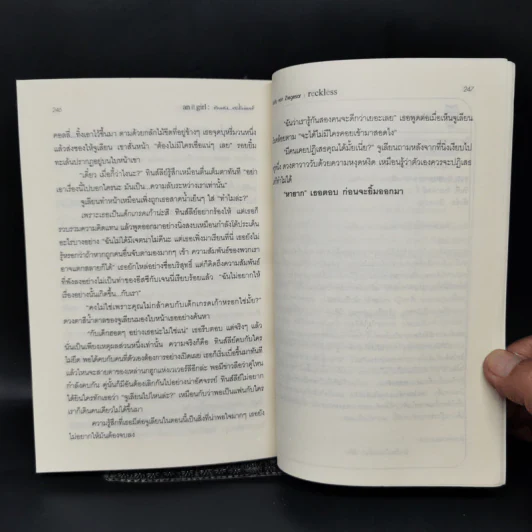 246 an it girl :
คอลลี่...ทิ้งเอาไว้ขึ้นมา ตามด้วยกลักไม้ขีดที่อยู่ข้างๆ เธอจุดบุหรี่มวนหนึ่ง
แล้วส่งของให้จูเลียน เขาสั่นหน้า "ต้องไม่ใครเชื่อแน่ๆ เลย" รอยยิ้ม
จะเต้นปรากฏอยู่บนใบหน้าเขา
"เดี๋ยว เมื่อกี้ว่าไงนะ?" ทินส์ลีย์รู้สึกเหมือนตื่นเต้นตาทันที "อย่า
เอาเรื่องนี้ไปบอกใครนะ มันเป็น...ความลับระหว่างเราเท่านั้น"
จูเลียนทำหน้าเหมือนเพิ่งถูกเธอสาดน้ำเย็นๆ ใส่ "ทำไมล่ะ?"
เพราะเธอเป็นเด็กเกรดเก้าน่ะสิ ทินส์ลีย์อยากร้องให้ แต่เธอก็
รวบรวมความคิดแทน แล้วพูดออกมาอย่างนิ่งสงบเหมือนกำลังได้ประเด็น
อะไรบางอย่าง "ฉันไม่ได้มีเจตนาไม่ดีนะ แต่เธอเพิ่งมาเรียนที่นี่ เธอยังไม่
รู้หรอกว่าถ้าหากถูกคนอื่นจับตามองมากๆ เข้า ความสัมพันธ์ของพวกเรา
อาจแตกสลายก็ได้" เธอยักไหล่อย่างซื่อบริสุทธิ์ แต่ก็คิดถึงความสัมพันธ์
ที่พังลงอย่างไม่เป็นท่าของอีสซีกับเจนนี่เรียบร้อยแล้ว "ฉันไม่อยากให้
เรื่องอย่างนั้นเกิดขึ้น...กับเรา"
"คงไม่ใช่เพราะคุณไม่กล้าคบกับเด็กเกรดเก้าหรอกใช่มั้ย?"
ดวงตาสีน้ำตาลของจูเลียนมองใบหน้าเธออย่างค้นหา
"กับเด็กฮอตๆ อย่างเธอน่ะไม่ใช่แน่" เธอรีบตอบ แต่จริงๆ แล้ว
นั่นเป็นเพียงเหตุผลส่วนหนึ่งเท่านั้น ความจริงก็คือ ทินส์ลีย์คบกับใคร
กำลังคบกัน คู่นั้นก็มีอันต้องเลิกกันไปอย่างน่าอัศจรรย์ ทินส์ลีย์ไม่อยาก
ได้ยินใครทักเธอว่า "จูเลียนไปไหนล่ะ?" เหมือนกับว่าพอเป็นแฟนกับใคร
เราก็เดินคนเดียวไม่ได้ขึ้นมา
ความรู้สึกที่เธอมีต่อจูเลียนในตอนนี้เป็นสิ่งที่น่าพอใจมากๆ เธอยัง
ไม่อยากให้มันต้องจบลง
: reckless 247
"ฉันว่าเรารู้กันสองคนจะดีกว่าเยอะเลย" เธอพูดต่อเมื่อเห็นจูเลียน
"จะได้ไม่มีใครคอยเข้ามาสอดไง"
"มีคนเคยปฏิเสธคุณได้มั้ยเนี่ย?" จูเลียนถามหลังจากที่นิ่งเงียบไป
ดวงตาวาววับด้วยความหงุดหงิด เหมือนรู้ว่าตัวเองควรจะปฏิเสธ
ไม่ได้
"หายาก" เธอตอบ ก่อนจะยิ้มออกมา